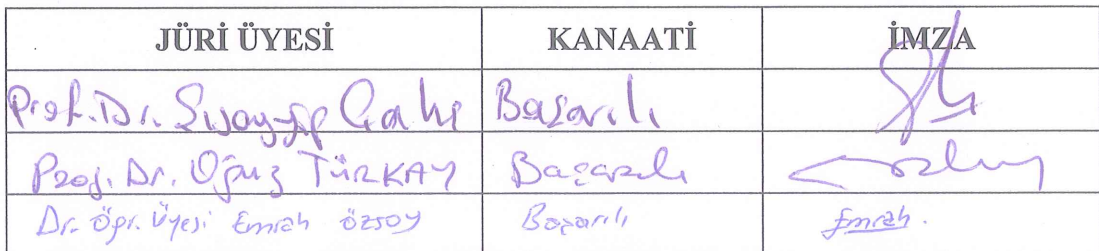 JÜRİ ÜYESİ KANAATİ İMZA
Prof. Dr. Başarılı
Prof. Dr. Oğuz TÜRKAY Başarılı
Dr. Öğr. Üyesi Emrah ÖZSOY Başarılı Emrah.